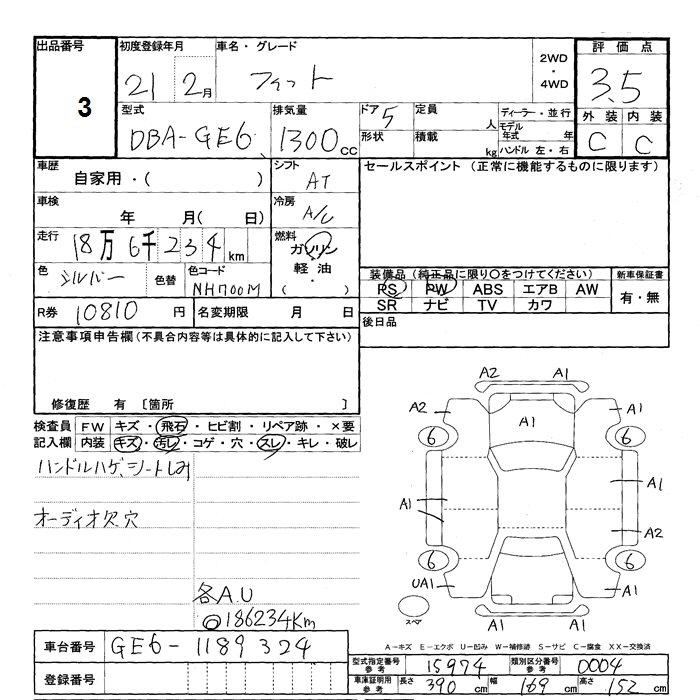 出品番号 初度登録年月 車名・グレード 2WD・4WD 評価点
3 21 2月 フィット 3.5
型式 排気量 ドア 5 定員 人 ディーラー・並行 外装 内装
DBA-GE6 1300cc 形状 積載 kg モデル年式 年 C C
ハンドル 左・右
車歴 シフト セールスポイント (正常に機能するものに限ります)
自家用・( ) AT
車検 冷房
年 月( 日) A/C
走行 燃料
18万6千234km ガソリン
軽油
・
( )
色 色替 色コード 装備品 (純正品に限り○をつけてください) 新車保証書
シルバー NH700M PS PW ABS エアB AW 有・無
SR ナビ TV カワ
R券 10810円 名変期限 月 日 後日品
注意事項申告欄 (不具合内容等は具体的に記入して下さい)
修復歴 有 〔箇所 〕
検査員 FW キズ・飛石・ヒビ割・リペア跡・×要
記入欄 内装 キズ・汚レ・コゲ・穴・スレ・キレ・破レ
ハンドルハゲ、シートしみ
オーディオ欠穴
各A.U
◎186234Km
A2 A1
A2 A1 A1
6 6
A1 A1
A2
6 6
UA1 A1
スペア
A1 A1
A-キズ E-エクボ U-凹み W-補修跡 S-サビ C-腐食 XX-交換済
車台番号 GE6-1189324
登録番号
型式指定番号 参考 15974 類別区分番号 参考 0004
車庫証明用 参考 長さ 390cm 幅 169cm 高さ 152cm